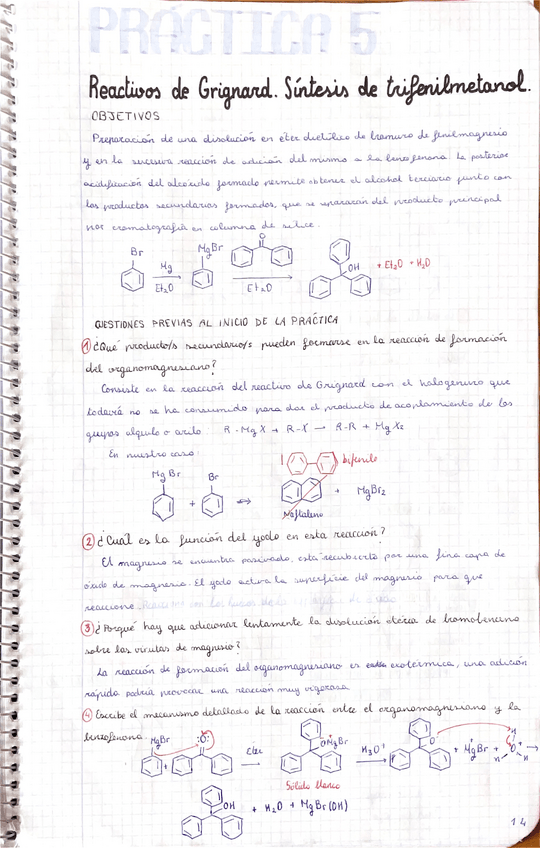 PRÁCTICA 5
Reactivos de Grignard. Síntesis de trifenilmetanol.
OBJETIVOS
Preparación de una disolución en éter dietílico de bromuro de fenilmagnesio
y en la sucesiva reacción de adición del mismo a la benzofenona. La posterior
acidificación del alcóxido formado permite obtener el alcohol terciario junto con
los productos secundarios formados, que se separarán del producto principal
por cromatografía en columna de sílice.
Br MgBr O
Mg OH + Et₂O + H₂O
Et₂O Et₂O
CUESTIONES PREVIAS AL INICIO DE LA PRÁCTICA
① ¿Qué producto/s secundario/s pueden formarse en la reacción de formación
del organomagnesiano?
Consiste en la reacción del reactivo de Grignard con el halogenuro que
todavía no se ha consumido para dar el producto de acoplamiento de los
grupos alquilo o arilo. R-MgX + R-X → R-R + MgX₂
En nuestro caso:
bifenilo
MgBr Br
+ + MgBr₂
Naftaleno
② ¿Cuál es la función del yodo en esta reacción?
El magnesio se encuentra pasivado, está recubierto por una fina capa de
óxido de magnesio. El yodo activa la superficie del magnesio para que
reaccione.
③ ¿Porqué hay que adicionar lentamente la disolución etérea de bromobenceno
sobre las virutas de magnesio?
La reacción de formación del organomagnesiano es exotérmica, una adición
rápida podría provocar una reacción muy vigorosa
④ Escribe el mecanismo detallado de la reacción entre el organomagnesiano y la
benzofenona.
MgBr :O: OMgBr O
+ éter H₃O⁺ + MgBr +
Sólido blanco
OH + H₂O + MgBr(OH)
14